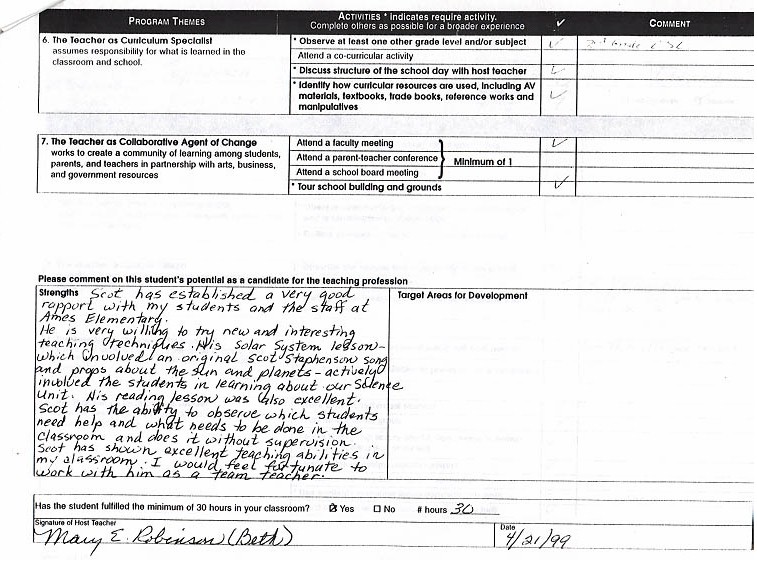 PROGRAM THEMES
ACTIVITIES * indicates require activity.
Complete others as possible for a broader experience
✓
COMMENT
6. The Teacher as Curriculum Specialist
assumes responsibility for what is learned in the
classroom and school.
* Observe at least one other grade level and/or subject ✓
Attend a co-curricular activity
* Discuss structure of the school day with host teacher ✓
* Identify how curricular resources are used, including AV
materials, textbooks, trade books, reference works and
manipulatives ✓
7. The Teacher as Collaborative Agent of Change
works to create a community of learning among students,
parents, and teachers in partnership with arts, business,
and government resources
Attend a faculty meeting ✓
Attend a parent-teacher conference
Attend a school board meeting
Minimum of 1
* Tour school building and grounds ✓
Please comment on this student's potential as a candidate for the teaching profession
Strengths Scot has established a very good
rapport with my students and the staff at
Ames Elementary.
He is very willing to try new and interesting
teaching techniques. His Solar System lesson-
which involved an original Scot Staphenson song
and props about the sun and planets - actively
involved the students in learning about our Science
Unit. His reading lesson was also excellent.
Scot has the ability to observe which students
need help and what needs to be done in the
classroom and does it without supervision.
Scot has shown excellent teaching abilities in
my classroom. I would feel fortunate to
work with him as a team teacher.
Target Areas for Development
Has the student fulfilled the minimum of 30 hours in your classroom? ☒ Yes ☐ No # hours 30
Signature of Host Teacher
Mary E. Robinson (Beth)
Date
4/21/99